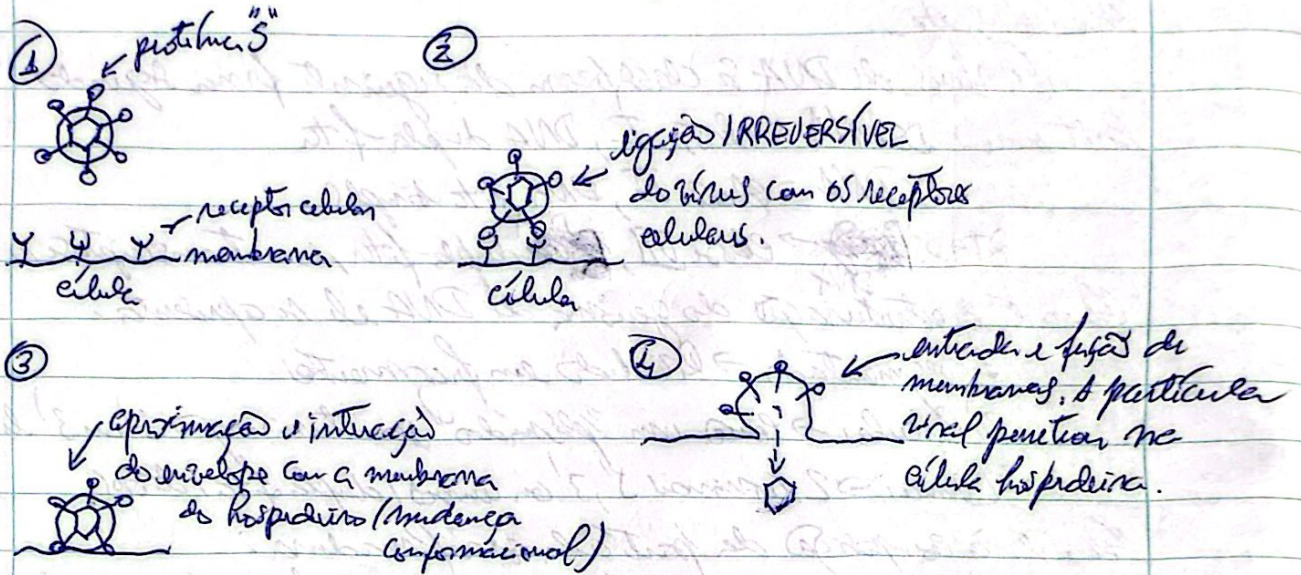 1
proteína "S"
receptor celular
membrana
célula
2
ligação IRREVERSÍVEL
do vírus com os receptores
celulares.
célula
3
aproximação e interação
do envelope com a membrana
do hospedeiro (mudança
conformacional)
4
entrada e fusão de
membranas. A partícula
viral penetra na
célula hospedeira.